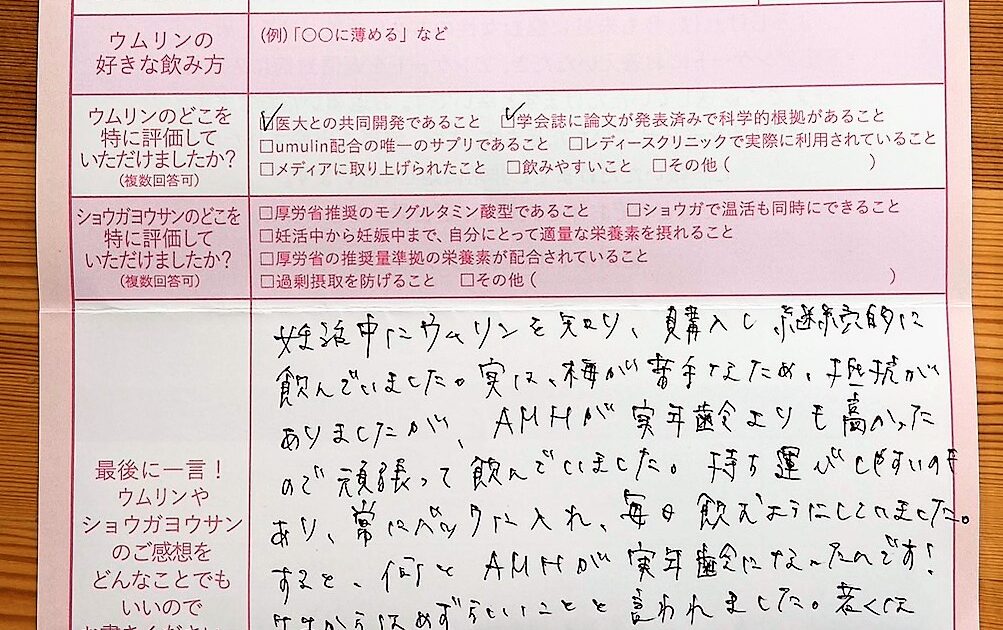 ウムリンの
好きな飲み方
(例)「〇〇に薄める」など
ウムリンのどこを
特に評価して
いただけましたか?
(複数回答可)
☑医大との共同開発であること ☑学会誌に論文が発表済みで科学的根拠があること
□umulin配合の唯一のサプリであること □レディースクリニックで実際に利用されていること
□メディアに取り上げられたこと □飲みやすいこと □その他 ( )
ショウガヨウサンのどこを
特に評価して
いただけましたか?
(複数回答可)
□厚労省推奨のモノグルタミン酸型であること □ショウガで温活も同時にできること
□妊活中から妊娠中まで、自分にとって適量な栄養素を摂れること
□厚労省の推奨量準拠の栄養素が配合されていること
□過剰摂取を防げること □その他 ( )
最後に一言!
ウムリンや
ショウガヨウサン
のご感想を
どんなことでも
いいので
妊活中にウムリンを知り、購入し継続的に
飲んでいました。実は、梅が苦手なため、抵抗が
ありましたが、AMHが実年齢よりも高かった
ので頑張って飲んでいました。持ち運びしやすいのも
あり、常にバックに入れ、毎日飲むようにしていました。
すると、何とAMHが実年齢になったんです!
ことと言われました。若くは